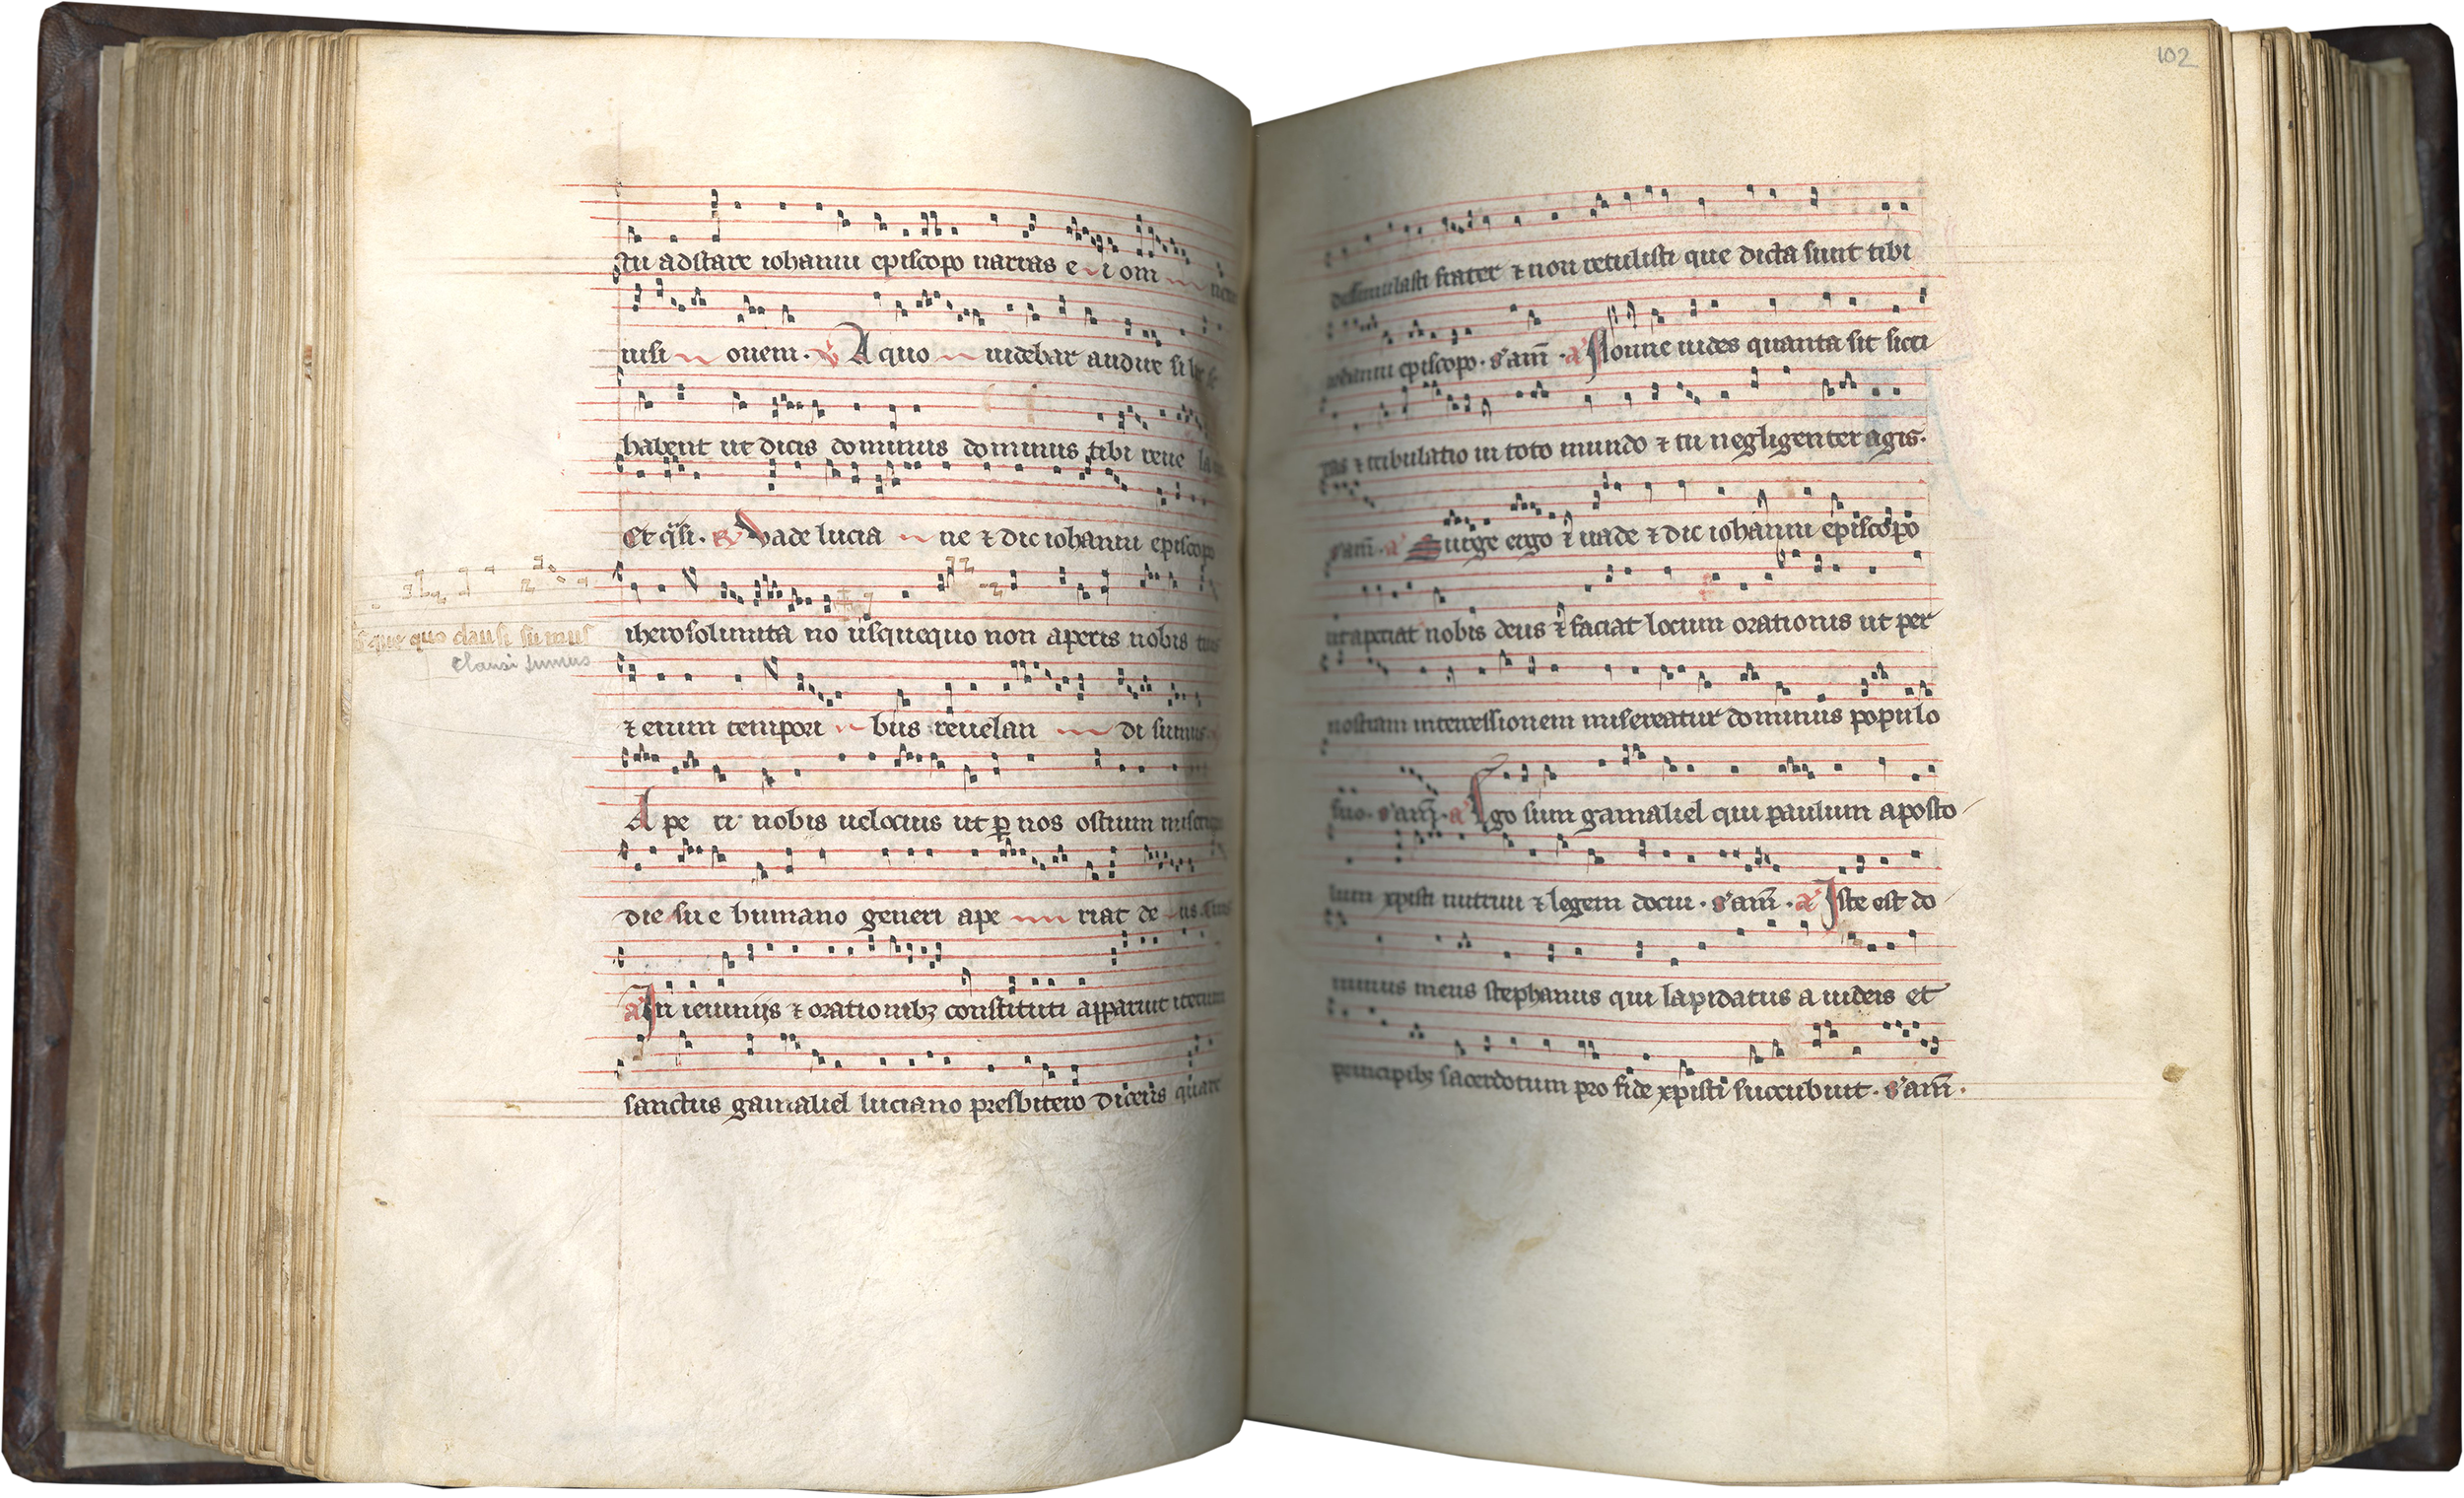 tu adstare iohanni episcopo narras e i om nem
uisi onem. ℣ A quo uidebar audire si h
habent ut dicis dominus dominus tibi reue la
Et q̄si. ℟ Vade lucia ne ⁊ dic iohanni episcopo
iherosolimita no usquequo non aperis nobis
usque quo clausi sumus
clausi sumus
⁊ enim tempori bus reuelan di sumus
A pe ri nobis uelocius ut ꝑ nos ostium
die sue humano generi ape riat de us
a In ieiuniis ⁊ orationibꝫ constituti apparuit iterum
sanctus gamaliel luciano presbitero dicens quare
102
dissimulasti frater ⁊ non retulisti que dicta sunt tibi
iohanni episcopo. s'am̄. a Nonne uides quanta sit sicci
tas ⁊ tribulatio in toto mundo ⁊ tu negligenter agis.
s'am̄. a Surge ergo ⁊ uade ⁊ dic iohanni episcopo
ut aperiat nobis deus ⁊ faciat locum orationis ut per
nostram intercessionem misereatur dominus populo
suo. s'am̄. a Ego sum gamaliel qui paulum aposto
lum xpisti nutriui ⁊ legem docui. s'am̄. a Iste est do
minus meus stephanus qui lapidatus a iudeis et
principibꝫ sacerdotum pro fide xpisti succubuit. s'am̄.